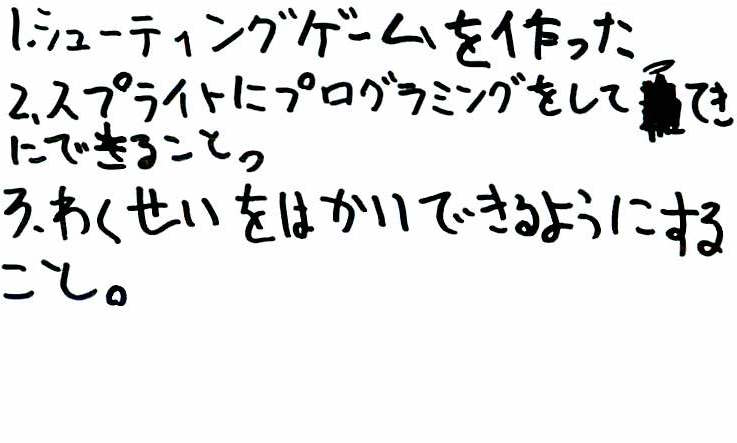 1.シューティングゲームを作った
2、スプライトにプログラミングをしててき
にできること。
3、わくせいをはかいできるようにする
こと。